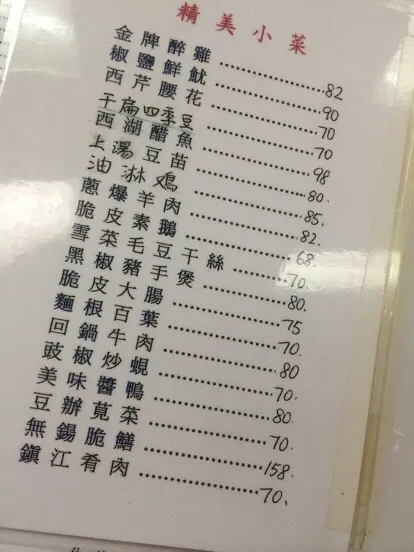 精美小菜
金牌醉雞……82
椒鹽鮮魷……90
西芹腰花……70
干扁四季豆……70
西湖醋魚……98
上湯豆苗……80.
油淋鸡……85.
蔥爆羊肉……82.
脆皮素鵝……68.
雪菜毛豆干絲……70.
黑椒豬手煲……80.
脆皮大腸……75
麵根百葉……70.
回鍋牛肉……80
豉椒炒蜆……70.
美味醬鴨……80.
豆辦莧菜……70.
無鍚脆鱔……158.
鎮江肴肉……70.